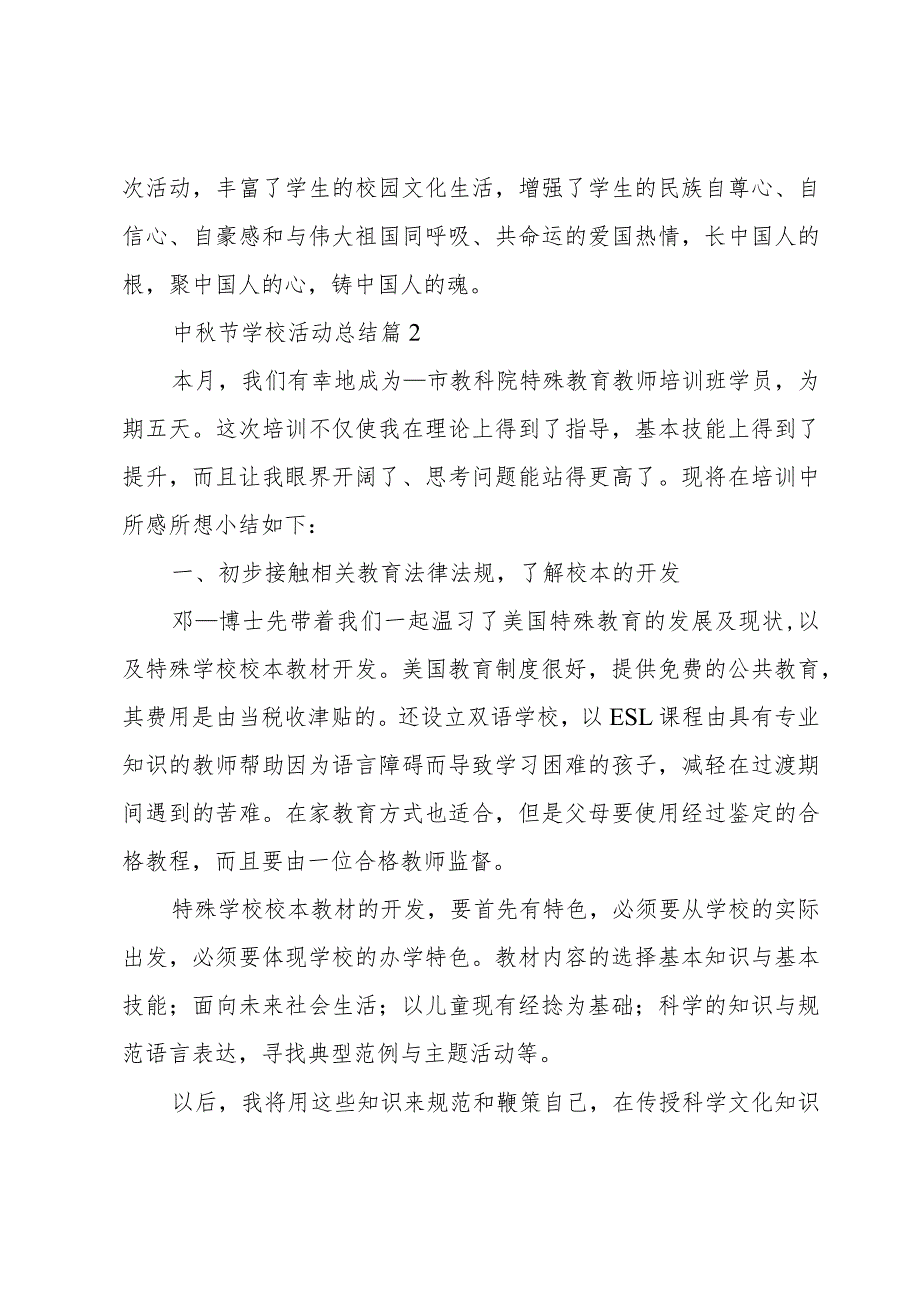 次活动，丰富了学生的校园文化生活，增强了学生的民族自尊心、自
信心、自豪感和与伟大祖国同呼吸、共命运的爱国热情，长中国人的
根，聚中国人的心，铸中国人的魂。
中秋节学校活动总结篇 2
本月，我们有幸地成为—市教科院特殊教育教师培训班学员，为
期五天。这次培训不仅使我在理论上得到了指导，基本技能上得到了
提升，而且让我眼界开阔了、思考问题能站得更高了。现将在培训中
所感所想小结如下：
一、初步接触相关教育法律法规，了解校本的开发
邓—博士先带着我们一起温习了美国特殊教育的发展及现状,以
及特殊学校校本教材开发。美国教育制度很好，提供免费的公共教育，
其费用是由当税收津贴的。还设立双语学校，以 ESL 课程由具有专业
知识的教师帮助因为语言障碍而导致学习困难的孩子，减轻在过渡期
间遇到的苦难。在家教育方式也适合，但是父母要使用经过鉴定的合
格教程，而且要由一位合格教师监督。
特殊学校校本教材的开发，要首先有特色，必须要从学校的实际
出发，必须要体现学校的办学特色。教材内容的选择基本知识与基本
技能；面向未来社会生活；以儿童现有经捻为基础；科学的知识与规
范语言表达，寻找典型范例与主题活动等。
以后，我将用这些知识来规范和鞭策自己，在传授科学文化知识